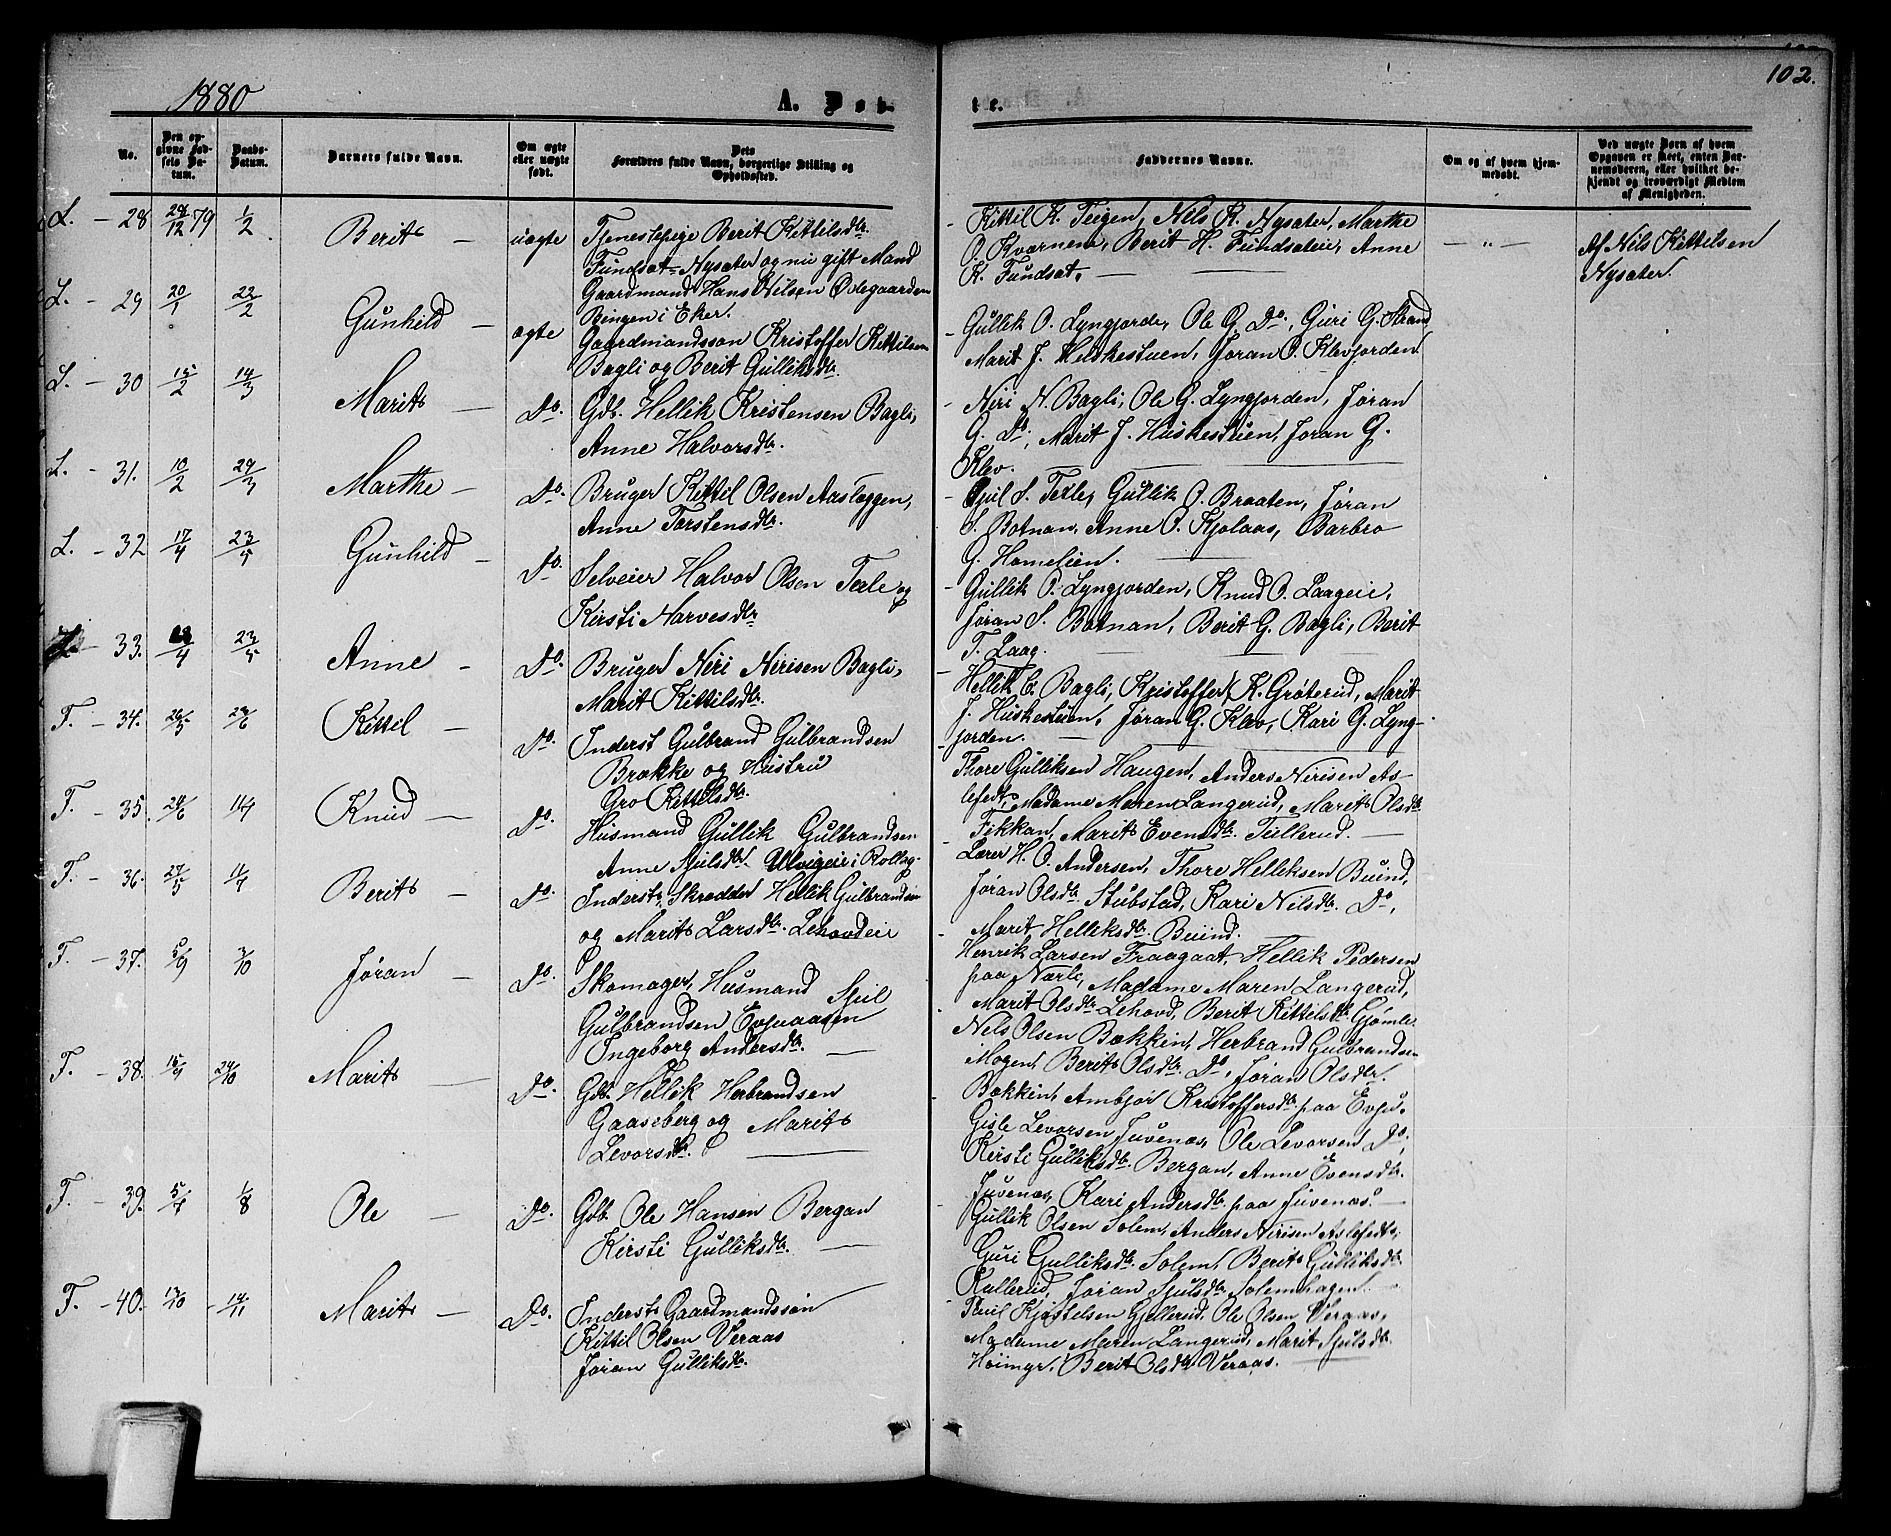 102.
1880
A. Døb-
te.
No.
Den op-
givne Fød-
sels Da-
tum.
Daabs-
Datum.
Barnets fulde Navn.
Om ægte
eller uægte
født.
Dets
Forældres fulde Navn, borgerlige Stilling og
Opholdssted.
Faddernes Navne.
Om og af hvem hjem-
medøbt.
Ved uægte Børn af hvem
Opgaven er skeet, enten Bar-
nemoderen, eller hvilket be-
kjendt og troværdigt Medlem
af Menigheden.
L. - 28 28/12 79 1/2 Berit - uægte
Tjenestepige Berit Kittilsdtr.
Fundsæt-Nysæter og nu gift Mand
Gaardmand Hans Nilsen Øvlegaarden
Bingen i Eker.
Kittil K. Teigen, Nils K. Nysæter, Marthe
O. Kværnene, Berit H. Fundsæteie, Anne
K. Fundsæt. —
— " —
Af Nils Kittilsen
Nysæter.
L. - 29 20/1 22/2 Gunhild - ægte
Gaardmandssøn Kristoffer Kittilsen
Bagli og Berit Gulliksdtr.
Gullik O. Lyngjorde, Ole G. Do, Guri G. Strand,
Marit J. Huskestuen, Jøran O. Klevjorden.
L. - 30 15/2 14/3 Marit - Do.
Gdb. Hellik Kristensen Bagli,
Anne Halvorsdtr.
Niri N. Bagli, Ole G. Lyngjorden, Jøran
G. Do, Marit J. Huskestuen, Jøran G.
Klev.
L. - 31. 10/2 29/3 Marthe - Do.
Bruger Kittil Olsen Aasleggen,
Anne Torstensdtr.
Sjul S. Texle, Gullik O. Braaten, Jøran
S. Botnan, Anne O. Kjølaas, Barbro
G. Hamelien.
L. - 32 17/4 23/5 Gunhild - Do.
Selveier Halvor Olsen Texle og
Kirsti Narvesdtr
Gullik O. Lyngjorden, Knud O. Laageie,
Jøran S. Botnan, Berit G. Bagli, Berit
T. Laag.
L - 33. /4 23/5 Anne - Do.
Bruger Niri Nirisen Bagli,
Marit Kittilsdtr.
Hellik C. Bagli, Kristoffer K. Grøterud, Marit
J. Huskestuen, Jøran G. Klev, Kari G. Lyng-
jorden.
F. - 34. 26/3 /6 Kittil - Do.
Inderst Gulbrand Gulbrandsen
Brække og Hustru
Gro Kittilsdtr.
Thore Gulliksen Haugen, Anders Nirisen As-
lefedt, Madame Maren Langerud, Marit Olsdtr
Fikkan, Marit Evensdtr. Tullerud. —
F. - 35. /6 11/7 Knud - Do.
Husmand Gullik Gulbrandsen
Anne Sjulsdtr. Ulvigeie i Rollag
Lærer H. O. Andersen, Thore Helliksen Buind,
Jøran Olsdtr. Stubstad, Kari Nilsdtr. Do,
Marit Helliksdtr. Buind.
F. - 36. 27/5 11/7 Berit - Do.
Inderst, Skrædder Hellik Gulbrandsen
og Marit Larsdtr. Lehovdeie
Henrik Larsen Fraagaat, Hellik Pedersen
paa Nærle, Madame Maren Langerud,
Marit Olsdtr Lehovd, Berit Kittilsdtr Gjømle.
F. - 37. 5/9 3/10 Jøran - Do.
Skomager, Husmand Sjul
Gulbrandsen Evjuaasen
Ingeborg Andersdtr. —
Nels Olsen Bækkin, Herbrand Gulbrandsen
Mogen, Berit Olsdtr. Do, Jøran Olsdtr.
Bækkin, Ambjør Kristoffersdtr paa Evju.
F. - 38. 15/9 24/10 Marit - Do.
Gdb. Hellik Herbrandsen
Gaaseberg og Marit
Levorsdtr. —
Gisle Levorsen Juvenæs, Ole Levorsen Do,
Kirsti Gulliksdtr. Bergan, Anne Evensdtr.
Juvenæs, Kari Andersdtr. paa Juvenæs. —
F. - 39. 5/7 1/8 Ole - Do.
Gdb. Ole Hansen Bergan
Kirsti Gulliksdtr. —
Gullik Olsen Solem, Anders Nirisen Aslefedt,
Guri Gulliksdtr. Solem, Berit Gulliksdtr
Rullerud, Jøran Sjulsdtr Solemhagen.
F. - 40. 13/10 14/11 Marit - Do.
Inderst Gaardmandssøn
Kittil Olsen Veraas
Jøran Gulliksdtr.
Paul Kjøstelsen Gjellerud, Ole Olsen Veraas,
Madame Maren Langerud, Marit Sjulsdtr.
Høimyr, Berit Olsdtr. Veraas. —